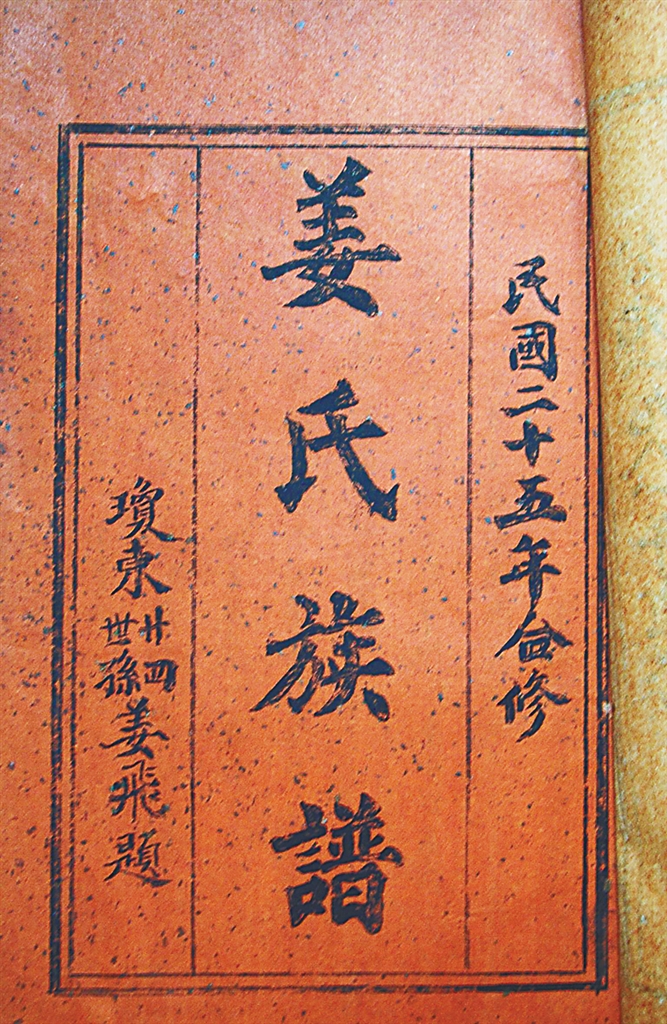 民國二十五年合修
姜氏族譜
瓊東廿四世孫姜飛題